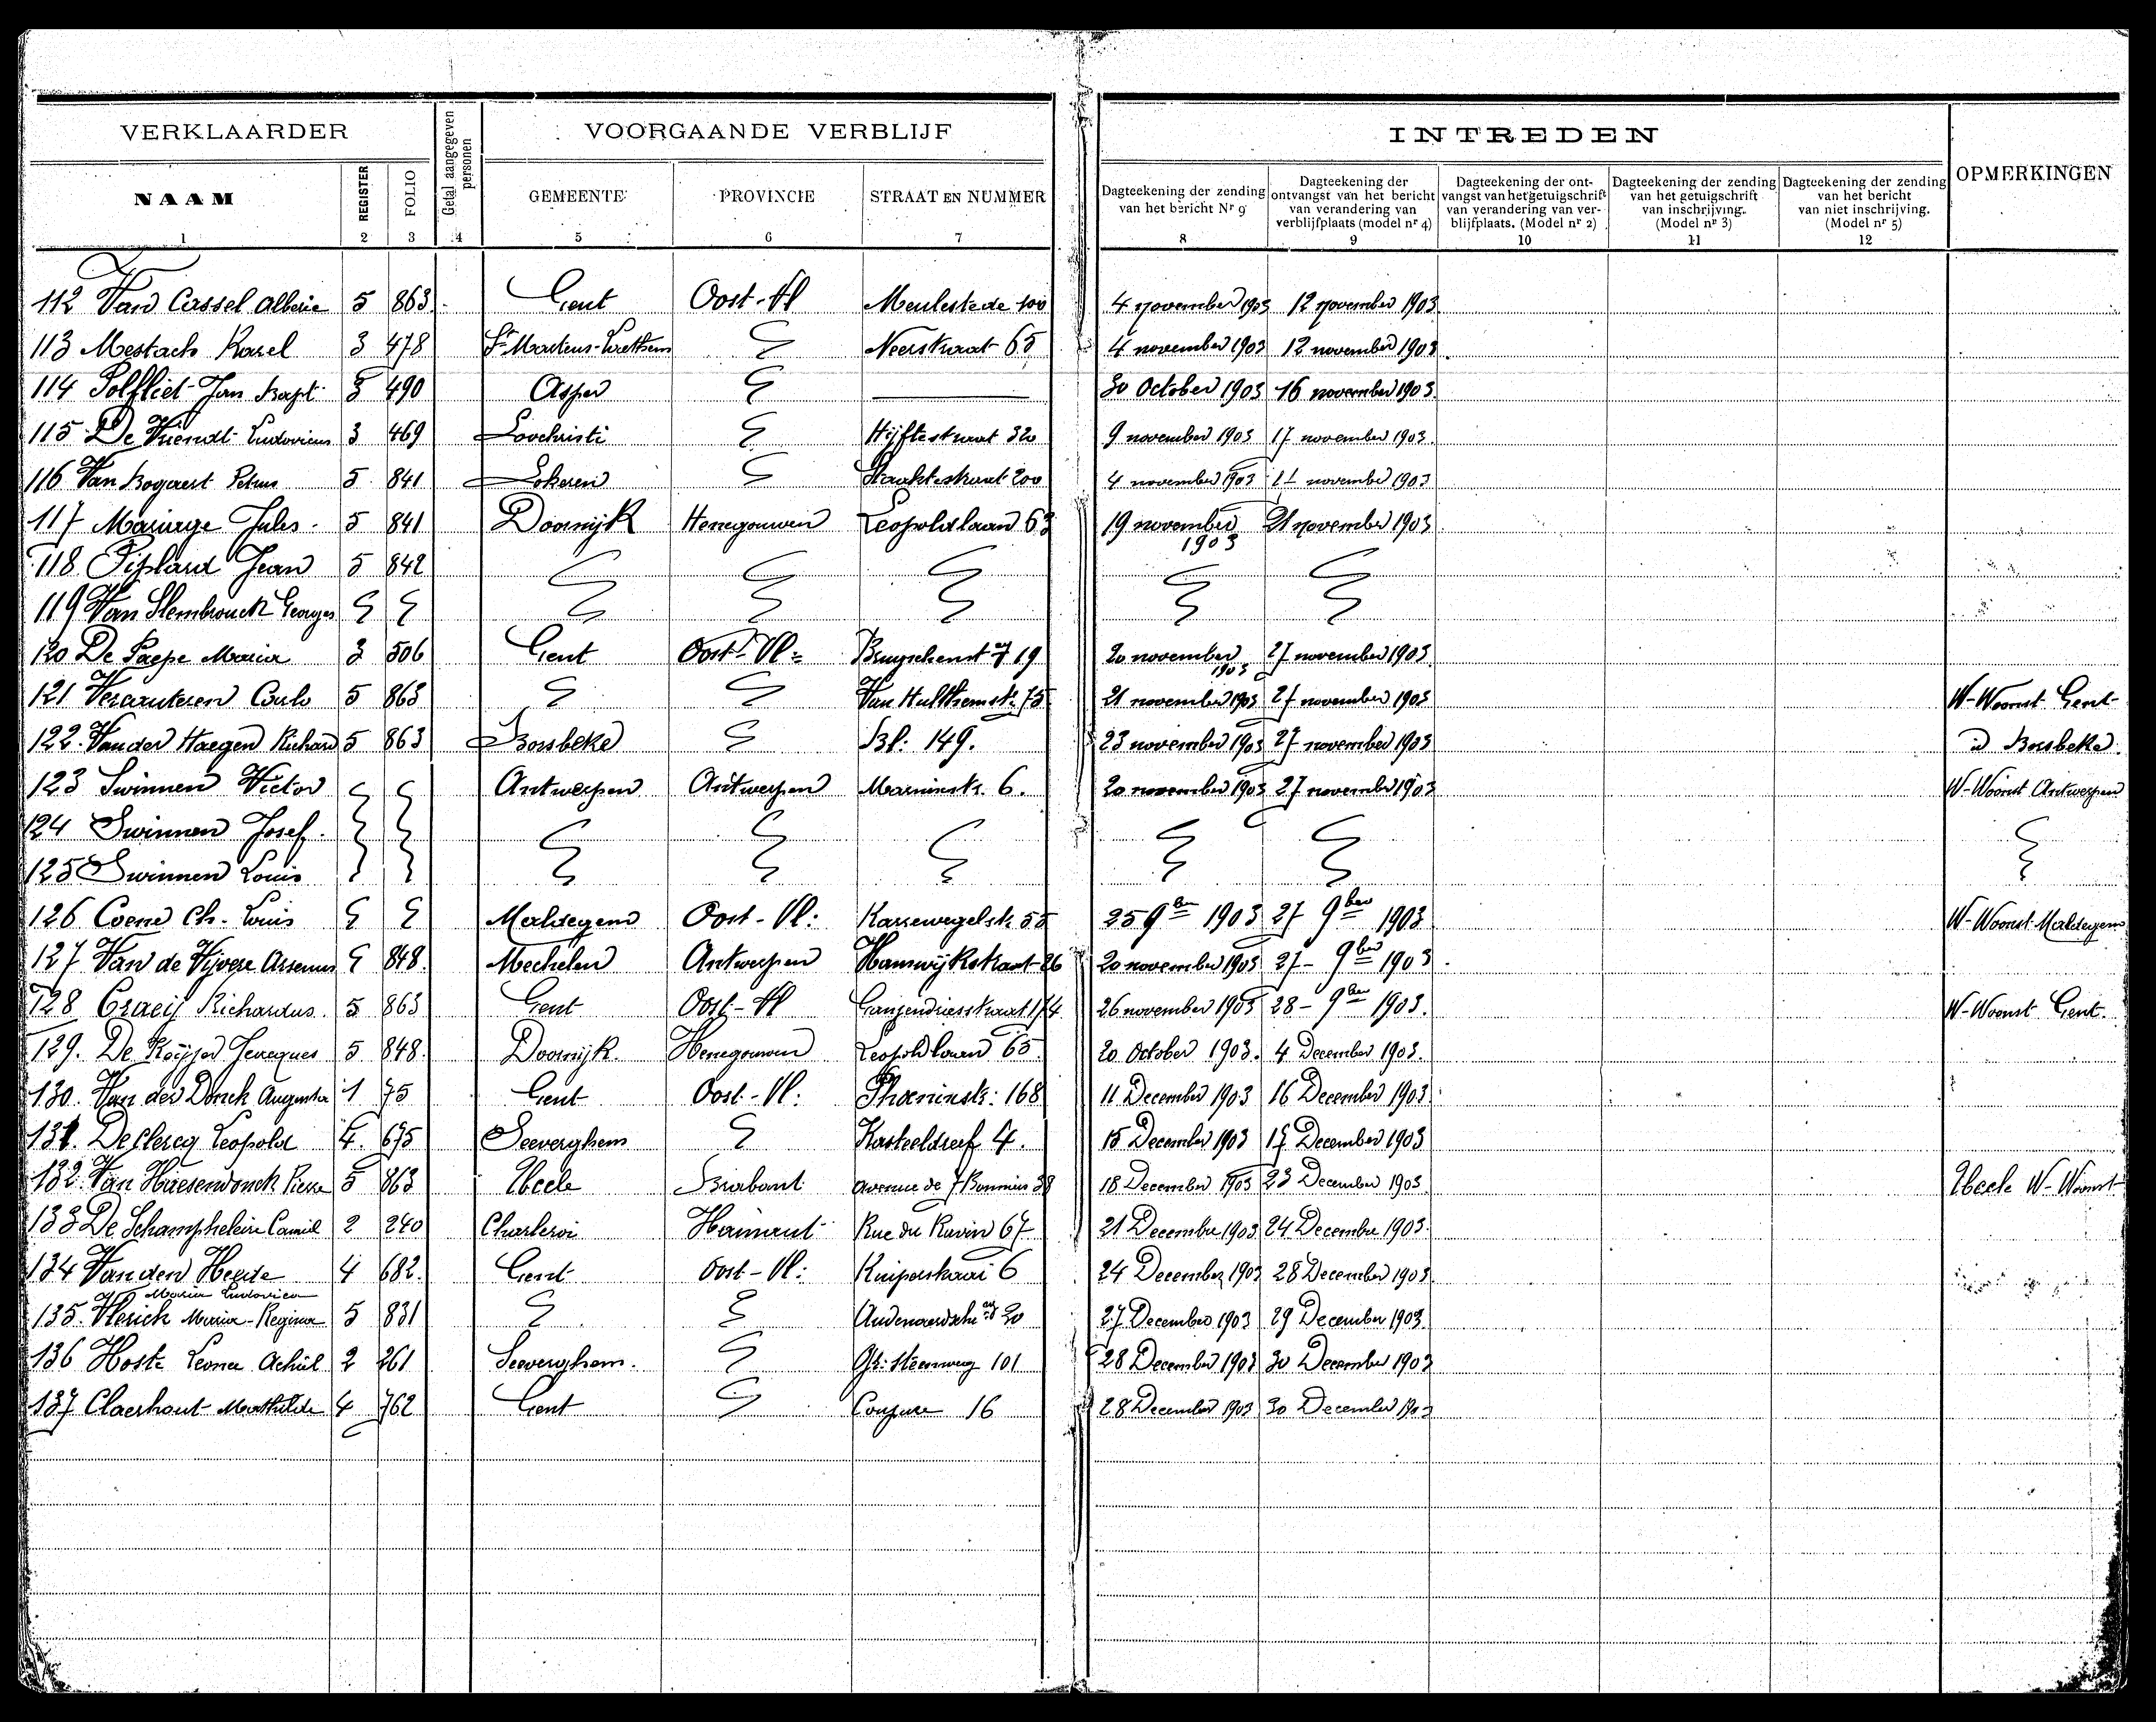 VERKLAARDER
Getal aangegeven personen
VOORGAANDE VERBLIJF
INTREDEN
OPMERKINGEN
NAAM REGISTER FOLIO GEMEENTE PROVINCIE STRAAT EN NUMMER
Dagteekening der zending van het bericht Nr 9
Dagteekening der ontvangst van het bericht van verandering van verblijfplaats (model nr 4)
Dagteekening der ontvangst van het getuigschrift van verandering van verblijfplaats. (Model nr 2)
Dagteekening der zending van het getuigschrift van inschrijving. (Model nr 3)
Dagteekening der zending van het bericht van niet inschrijving. (Model nr 5)
1 2 3 4 5 6 7 8 9 10 11 12
112 Van Cassel Alberic 5 863 Gent Oost-Vl Meulestede 100 4 november 1903 12 november 1903
113 Mestach Karel 3 478 St Martens-Laethem Neerstraat 65 4 november 1903 12 november 1903
114 Polfliet Jan Bapt 3 490 Asper 30 October 1903 16 november 1903
115 De Vriendt Ludovicus 3 469 Loochristi Hijftestraat 320 9 november 1903 17 november 1903
116 Van Bogaert Petrus 5 841 Lokeren 200 4 november 1903 11 november 1903
117 Mariage Jules 5 841 Doornijk Henegouwen Leopoldlaan 63 19 november 1903 21 november 1903
118 Piplard Jean 5 842
119 Van Slembrouck Georges
120 De Paepe Maria 3 506 Gent Oost-Vl: 19 20 november 1903 27 november 1903
121 Vercauteren Carlo 5 863 Van Hulthemstr. 75 21 november 1903 27 november 1903 W-Woonst Gent
122 Van der Haegen Richard 5 863 Borsbeke Bl: 149. 23 november 1903 27 november 1903 id Borsbeke
123 Swinnen Victor Antwerpen Antwerpen 6. 20 november 1903 27 november 1903 W-Woonst Antwerpen
124 Swinnen Josef
125 Swinnen Louis
126 Coene Ch. Louis Maldegem Oost-Vl: Karrewegelstr 55 25 9ber 1903 27 9ber 1903 W-Woonst Maldegem
127 Van de Vijvere Arsenius 848 Mechelen Antwerpen Hanswijkstraat 26 20 november 1903 27 9ber 1903
128 Craeij Richardus 5 863 Gent Oost-Vl Ganzendriesstraat 174 26 november 1903 28 9ber 1903 W-Woonst Gent
129. De Keijser Jacques 5 848 Doornijk Henegouwen Leopoldlaan 65 20 October 1903 4 December 1903
130. Van der Donck Augusta 1 75 Gent Oost-Vl: Phoenixstr: 168 11 December 1903 16 December 1903
131. Declercq Leopold 4 675 Seeverghem Kasteeldreef 4. 15 December 1903 17 December 1903
132 Van Haesendonck Pierre 5 863 Uccle Brabant Avenue de 38 18 December 1903 23 December 1903 Uccle W-Woonst
133 De Schampheleire Camiel 2 240 Charleroi Hainaut Rue du Ravin 67 21 December 1903 24 December 1903
134 Van den Heede Maria Ludovica 4 682 Gent Oost-Vl: Kuiperskaai 6 24 December 1903 28 December 1903
135. Vlerick Maria-Regina 5 831 Audenaerdsche 20 27 December 1903 29 December 1903
136 Hoste Leonce Achiel 2 261 Seeverghem Steenweg 101 28 December 1903 30 December 1903
137 Claerhout Mathilde 4 762 Gent Coupure 16 28 December 1903 30 December 1903